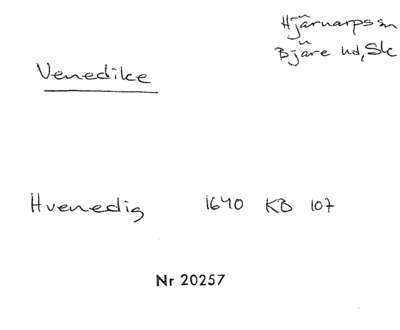 Hjärnarpssn
Bjäre hd, Sk
Venedike
Hvenedig 1640 KB 107
Nr 20257